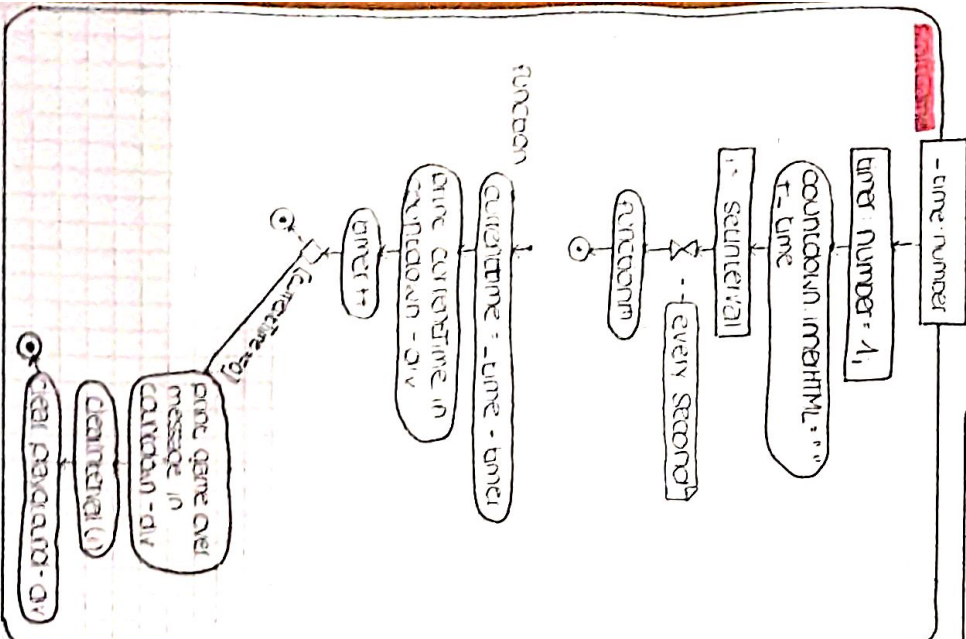 - time: number
timer: number = 1;
countdown.innerHTML = ""
t = time
i = setInterval
every second
function
function
currenttime = _time - timer
print currentTime in
countdown - div
timer ++
[currenttime == 0]
print game over
message in
countdown - div
clearInterval (i)
clear playground - div